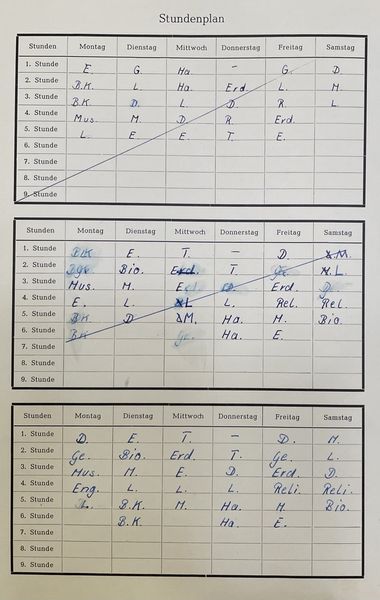 Stundenplan
Stunden Montag Dienstag Mittwoch Donnerstag Freitag Samstag
1. Stunde E. G. Ha. – G. D.
2. Stunde B.K. L. Ha. Erd. L. M.
3. Stunde B.K. D. L. D R L
4. Stunde Mus. M. D. R. Erd.
5. Stunde L. E. E T. E.
6. Stunde
7. Stunde
8. Stunde
9. Stunde
Stunden Montag Dienstag Mittwoch Donnerstag Freitag Samstag
1. Stunde E. T. – D. M.
2. Stunde Bio. Erd. T. Ge. L.
3. Stunde Mus. M. E D. Erd.
4. Stunde E. L. L L. Rel. Rel.
5. Stunde B.K. D M. Ha. M. Bio.
6. Stunde B.K. Ge. Ha. E.
7. Stunde
8. Stunde
9. Stunde
Stunden Montag Dienstag Mittwoch Donnerstag Freitag Samstag
1. Stunde D. E. T. – D. M.
2. Stunde Ge. Bio. Erd. T. Ge. L.
3. Stunde Mus. M. E. D. Erd. D.
4. Stunde Eng. L. L. L. Reli. Reli.
5. Stunde L. B.K. M. Ha. M. Bio.
6. Stunde B.K. Ha. E.
7. Stunde
8. Stunde
9. Stunde